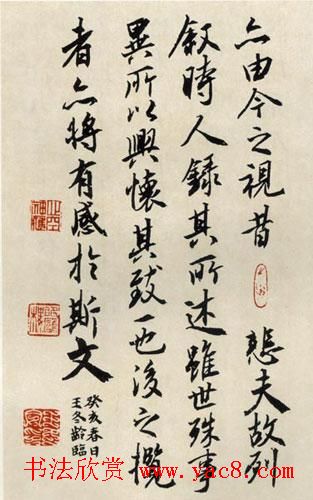 亦由今之視昔 悲夫故列
叙時人錄其所述雖世殊事
異所以興懷其致一也後之攬
者亦將有感於斯文
癸亥春日
王冬齡臨
书法欣赏 www.yac8.com